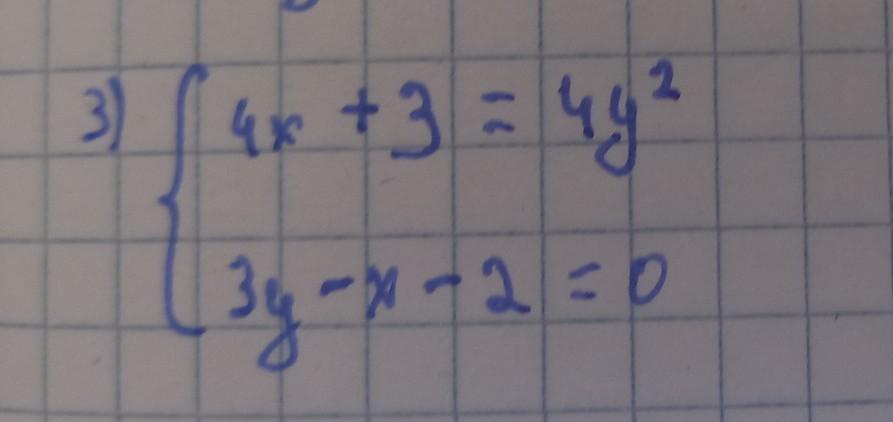 3) { 4x + 3 = 4y²
3y - x - 2 = 0